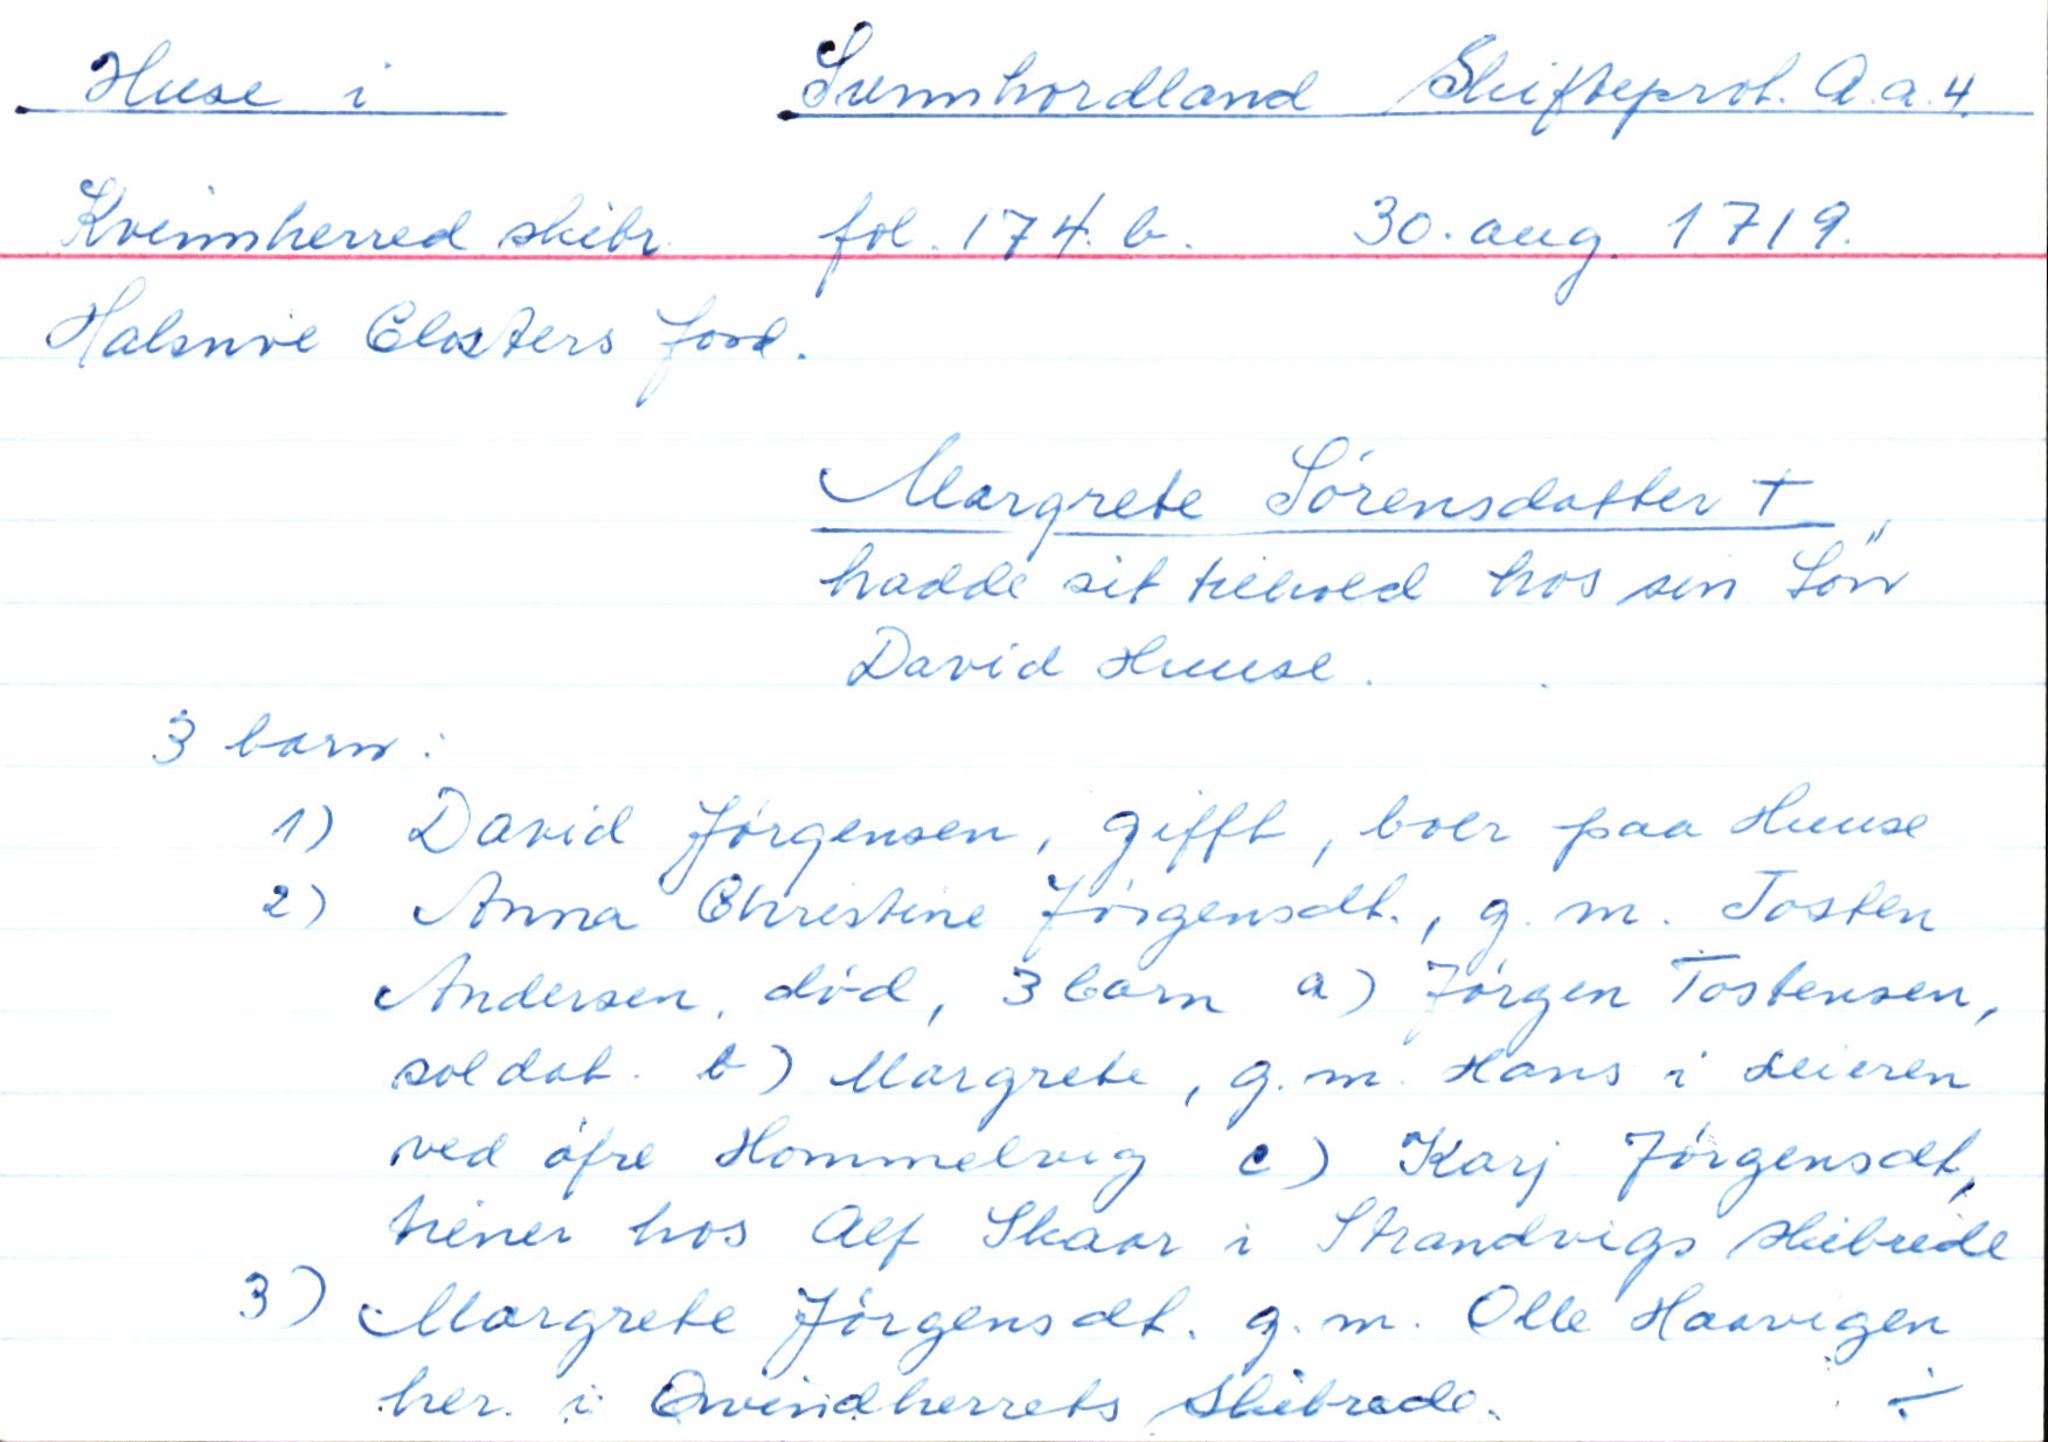 Huse i Sunnhordland Skifteprot. A.a.4.
Kvinnherred skibr. fol. 174.b. 30. aug. 1719.
Halsnöe Closters jord.
Margrete Sörensdatter †,
hadde sit tilhold hos sin Sön
David Huuse.
3 barn:
1) David Jörgensen, gifft, boer paa Huuse
2) Anna Christine Jörgensdt., g. m. Tosten
Andersen, död, 3 barn a) Jörgen Tostensen,
soldat. b) Margrete, g.m. Hans i Leieren
ved öfre Hommelvig c) Karj Jörgensdt,
tiener hos Alf Skaar i Strandvigs skibrede
3) Margrete Jörgensdt. g.m. Olle Haavigen
her i Qvindherrets Skibrede. ÷